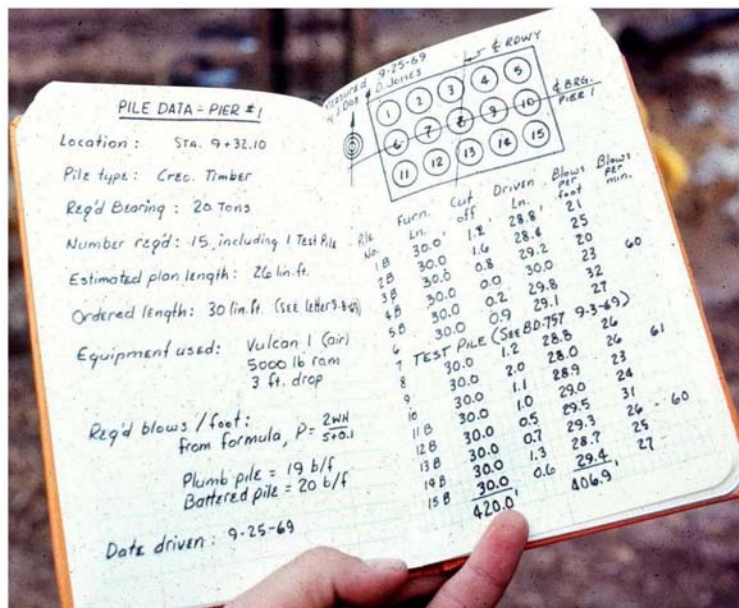 PILE DATA - PIER #1
Location: STA. 9+32.10
Pile type: Creo. Timber
Req'd Bearing: 20 Tons
Number req'd: 15, including 1 Test Pile
Estimated plan length: 26 lin.ft.
Ordered length: 30 lin.ft. (SEE letter 9-8-69)
Equipment used: Vulcan 1 (air)
5000 lb ram
3 ft. drop
Req'd blows/foot:
from formula, P = 2WH/S+0.1
Plumb pile = 19 b/f
Battered pile = 20 b/f
Date driven: 9-25-69
Measured 9-25-69
J. Doe D. Jones
℄ RDWY
℄ BRG.
PIER 1
1 2 3 4 5
6 7 8 9 10
11 12 13 14 15
Pile No. Furn. Ln. Cut off Driven Ln. Blows per foot Blows per min.
1B 30.0' 1.2' 28.8' 21
2B 30.0 1.6 28.4 25
3B 30.0 0.8 29.2 20 60
4B 30.0 0.0 30.0 23
5B 30.0 0.2 29.8 32
6 30.0 0.9 29.1 27
7 TEST PILE (SEE BD-757 9-3-69)
8 30.0 1.2 28.8 26
9 30.0 2.0 28.0 26 61
10 30.0 1.1 28.9 23
11B 30.0 1.0 29.0 24
12B 30.0 0.5 29.5 31
13B 30.0 0.7 29.3 26 - 60
14B 30.0 1.3 28.7 25
15B 30.0 0.6 29.4 27
420.0' 406.9'